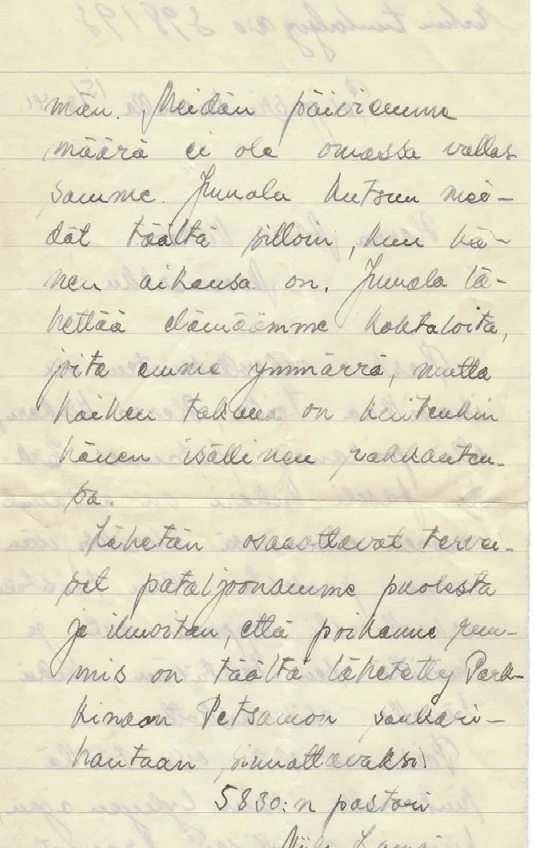 man. Meidän päiviemme
määrä ei ole omassa vallas
samme. Jumala kutsuu mei-
dät täältä silloin, kun hä-
nen aikansa on. Jumala lä-
hettää elämäämme kohtaloita,
joita emme ymmärrä, mutta
kaiken takana on kuitenkin
hänen isällinen rakkauten-
sa.
Lähetän osaaottavat tervei-
set pataljoonamme puolesta
ja ilmoitan, että poikanne ruu-
mis on täältä lähetetty Park-
kinaan Petsamon sankari-
hautaan siunattavaksi
5830:n pastori